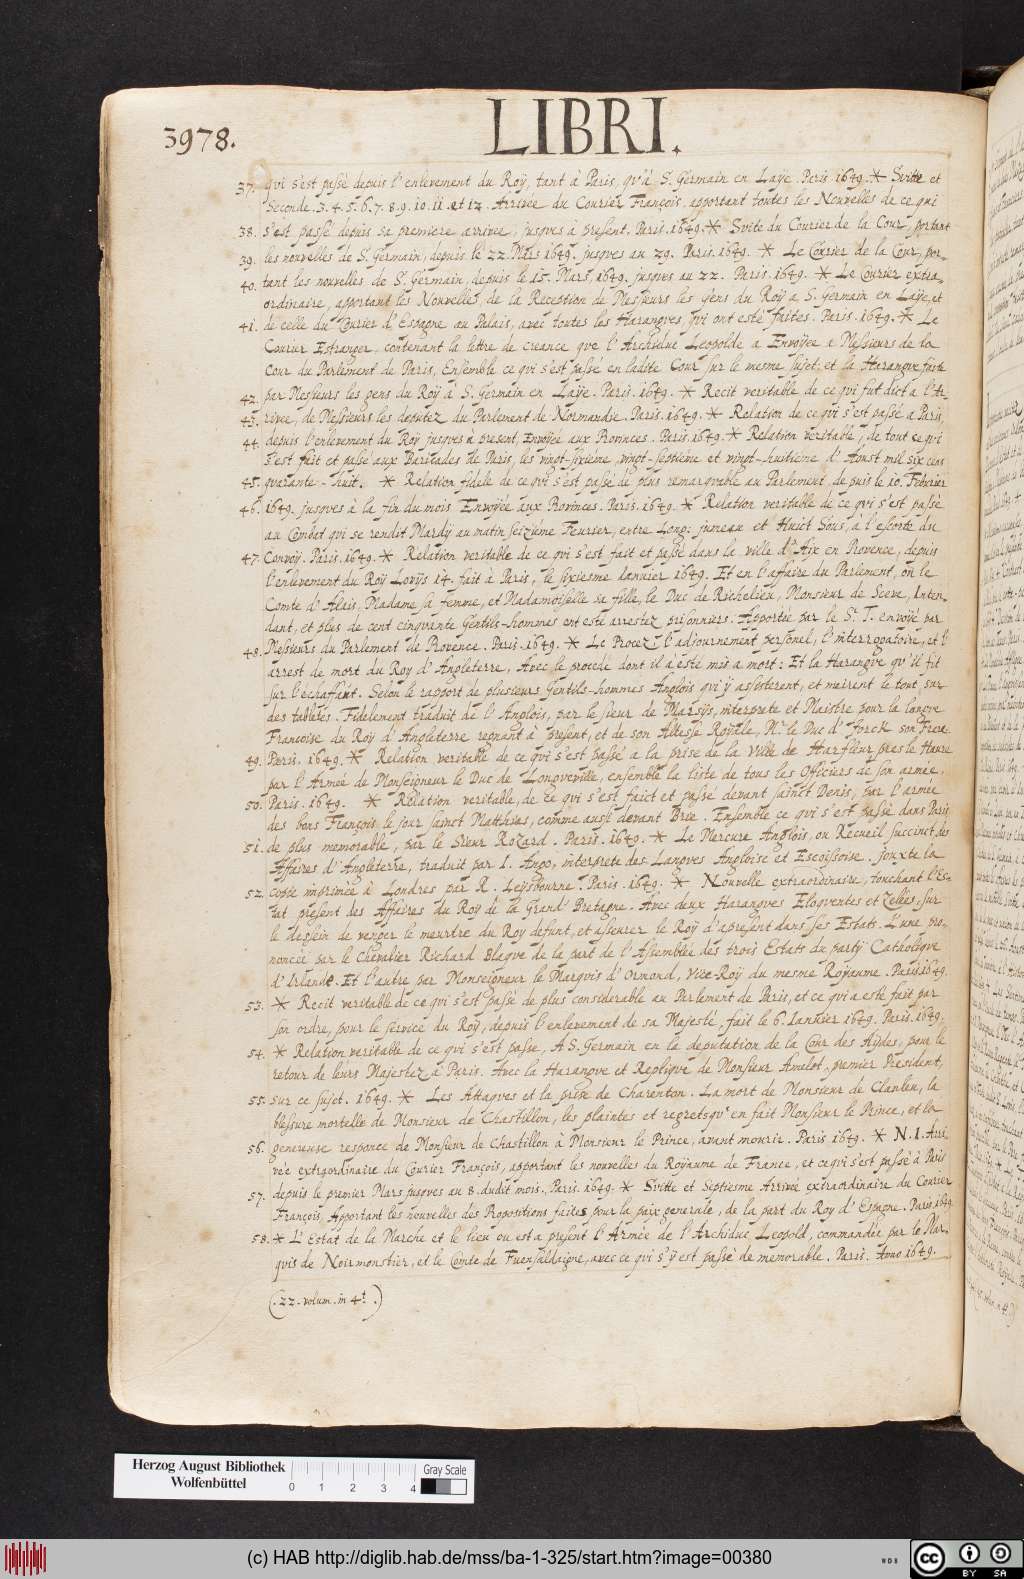 3978.
LIBRI.
37. qvi s'est passé depuis l'enlevement du Roÿ, tant à Paris, qv'à S. Germain en Laye. Paris. 1649. * Svitte et
Seconde. 3. 4. 5. 6. 7. 8. 9. 10. 11. et 12. Arrivée du Courier François, apportant toutes les Nouvelles de ce qvi
38. s'est passé depuis sa premiere arrivée, jusqves à present. Paris. 1649. * Svite du Courier de la Cour, portant
39. les nouvelles de S. Germain, depuis le 22. Mars 1649. jusqves au 29. Paris. 1649. * Le Courier de la Cour, por-
40. tant les nouvelles de S.t Germain, depuis le 15. Mars, 1649. jusqves au 22. Paris. 1649. * Le Courier extra-
ordinaire, apportant les Nouvelles de la Reception de Messieurs les Gens du Roÿ a S. Germain en Laÿe, et
41. de celle du Courier d'Espagne au Palais, avec toutes les Harangves, qvi ont esté faites. Paris. 1649. * Le
Courier Estranger, contenant la lettre de creance qve l'Archiduc Leopolde a Envoÿée a Messieurs de la
Cour du Parlement de Paris, Ensemble ce qvi s'est passé en ladite Cour sur le mesme sujet: et la Harangve faite
42. par Messieurs les gens du Roÿ à S. Germain en Laÿe. Paris. 1649. * Recit veritable de ce qvi fut dict a l'Ar-
43. rivee, de Messieurs les deputez du Parlement de Normandie. Paris. 1649. * Relation de ce qvi s'est passé a Paris,
44. depuis l'enlevement du Roÿ jusqves à present, Envoÿée aux Provinces. Paris. 1649. * Relation veritable, de tout ce qvi
s'est fait et passé aux Baricades de Paris, les vingt-sixieme, vingt-septieme et vingt-huitieme d'Aoust mil six cens
45. qvarante-huit. * Relation fidele de ce qvi s'est passé de plus remarqvable au Parlement, depuis le 10. Febvrier
46. 1649. jusqves à la fin du mois Envoÿée aux Provinces. Paris. 1649. * Relation veritable de ce qvi s'est passé
au Combat qvi se rendit Mardÿ au matin seiziéme Feurier, entre Long-jumeau et Huict Sous, à l'escorte du
47. Convoÿ. Paris. 1649. * Relation veritable de ce qvi s'est fait et passé dans la ville d'Aix en Provence, depuis
l'enlevement du Roÿ Lovÿs 14. fait à Paris, le sixiesme Ianvier 1649. Et en l'affaire du Parlement, où le
Comte d'Alais, Madame sa femme, et Madamoiselle sa fille, le Duc de Richelieu, Monsieur de Sceve, Inten-
dant, et plus de cent cinqvante Gentils-hommes ont esté arrestez prisonniers. Apportée par le S.r T. envoÿé par
48. Messieurs du Parlement de Provence. Paris. 1649. * Le Procez l'adjournement personel, l'interrogatoire, et l'
arrest de mort du Roy d'Angleterre, Avec le procede dont il a esté mis a mort: Et la Harangve qv'il fit
sur l'echaffaut. Selon le rapport de plusieurs Gentils-hommes Anglois qvi ÿ assisterent, et mirent le tout sur
des tabletes. Fidelement traduit de l'Anglois, par le sieur de Marsÿs, interprete et Maistre pour la langve
Francoise du Roy d'Angleterre regnant à present, et de son Altesse Royale, M.r le Duc d'Jorck son Frere.
49. Paris. 1649. * Relation veritable de ce qvi s'est passé a la prise de la Ville de Harfleur pres le Havre
par l'Armée de Monseigneur le Duc de Longveville, ensemble la liste de tous les Officiers de son armée.
50. Paris. 1649. * Relation veritable, de ce qvi s'est faict et passé devant sainct Denis, par l'armée
des bons François, le jour sainct Matthias, comme aussi devant Brie. Ensemble ce qvi s'est passé dans Paris
51. de plus memorable, par le Sieur Rozard. Paris. 1649. * Le Mercure Anglois, ou Recueil succinct des
Affaires d'Angleterre, traduit par I. Ango, interprete des Langves Angloise et Escoissoise. Jouxte la
52. copie imprimée à Londres par R. Leÿsbourne. Paris. 1649. * Nouvelle extraordinaire, touchant l'Es-
tat present des Affaires du Roÿ de la Grand' Bretagne. Avec deux Harangves Eloqventes et Zelées, sur
le dessein de venger le meurtre du Roy defunt, et asseurer le Roÿ d'apresent dans ses Estats. L'une pro-
noncée par le Chevalier Richard Blaqve de la part de l'Assemblée des trois Estats du party Catholiqve
d'Irlande. Et l'autre par Monseigneur le Marqvis d'Ormond, Vice-Roÿ du mesme Roÿaume. Paris. 1649.
53. * Recit veritable de ce qvi s'est passé de plus considerable au Parlement de Paris, et ce qvi a esté fait par
son ordre, pour le service du Roÿ, depuis l'enlevement de sa Majesté, fait le 6. Ianvier 1649. Paris. 1649.
54. * Relation veritable de ce qvi s'est passe, A S. Germain en la deputation de la Cour des Aÿdes, pour le
retour de leurs Majestez à Paris. Avec la Harangve et Repliqve de Monsieur Amelot, premier President,
55. sur ce sujet. 1649. * Les Attaqves et la prise de Charenton. La mort de Monsieur de Clanleu, la
blessure mortelle de Monsieur de Chastillon, les plaintes et regrets qv'en fait Monsieur le Prince, et la
56. genereuse responce de Monsieur de Chastillon à Monsieur le Prince, avant mourir. Paris 1649. * N. I. Arri-
vée extraordinaire du Courier François, apportant les nouvelles du Roÿaume de France, et ce qvi s'est passé à Paris
57. depuis le premier Mars jusqves au 8. dudit mois. Paris. 1649. * Svitte et Septiesme Arrivée extraordinaire du Courier
François, Apportant les nouvelles des Propositions faites pour la paix generale, de la part du Roy d'Espagne. Paris 1649.
58. * L'Estat de la Marche et le lieu ou est a present l'Armée de l'Archiduc Leopold, commandée par le Mar-
qvis de Noirmonstier, et le Comte de Fuensaldaigne, avec ce qvi s'ÿ est passé de memorable. Paris. Anno 1649.
(. 22. volum. in 4.t .)
Herzog August Bibliothek
Wolfenbüttel
0 1 2 3 4
Gray Scale
(c) HAB http://diglib.hab.de/mss/ba-1-325/start.htm?image=00380
WDB
cc BY SA